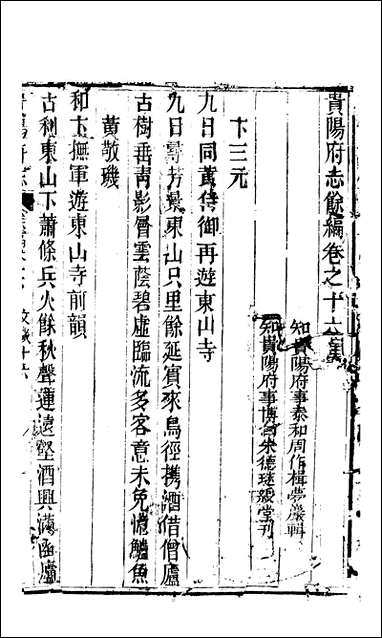 貴陽府志餘編卷之十六
知貴陽府事泰和周作楫夢巖輯
知貴陽府事博白朱德璲綬堂刊
卞三元
九日同黃侍御再遊東山寺
九日尋芳景東山只里餘延賓來鳥徑攜酒借僧廬
古樹垂靑影層雲蔭碧虛臨流多客意未免憶鱸魚
黃敬璣
和卞撫軍遊東山寺前韻
古利東山下蕭條兵火餘秋聲連遠壑酒興滿函廬